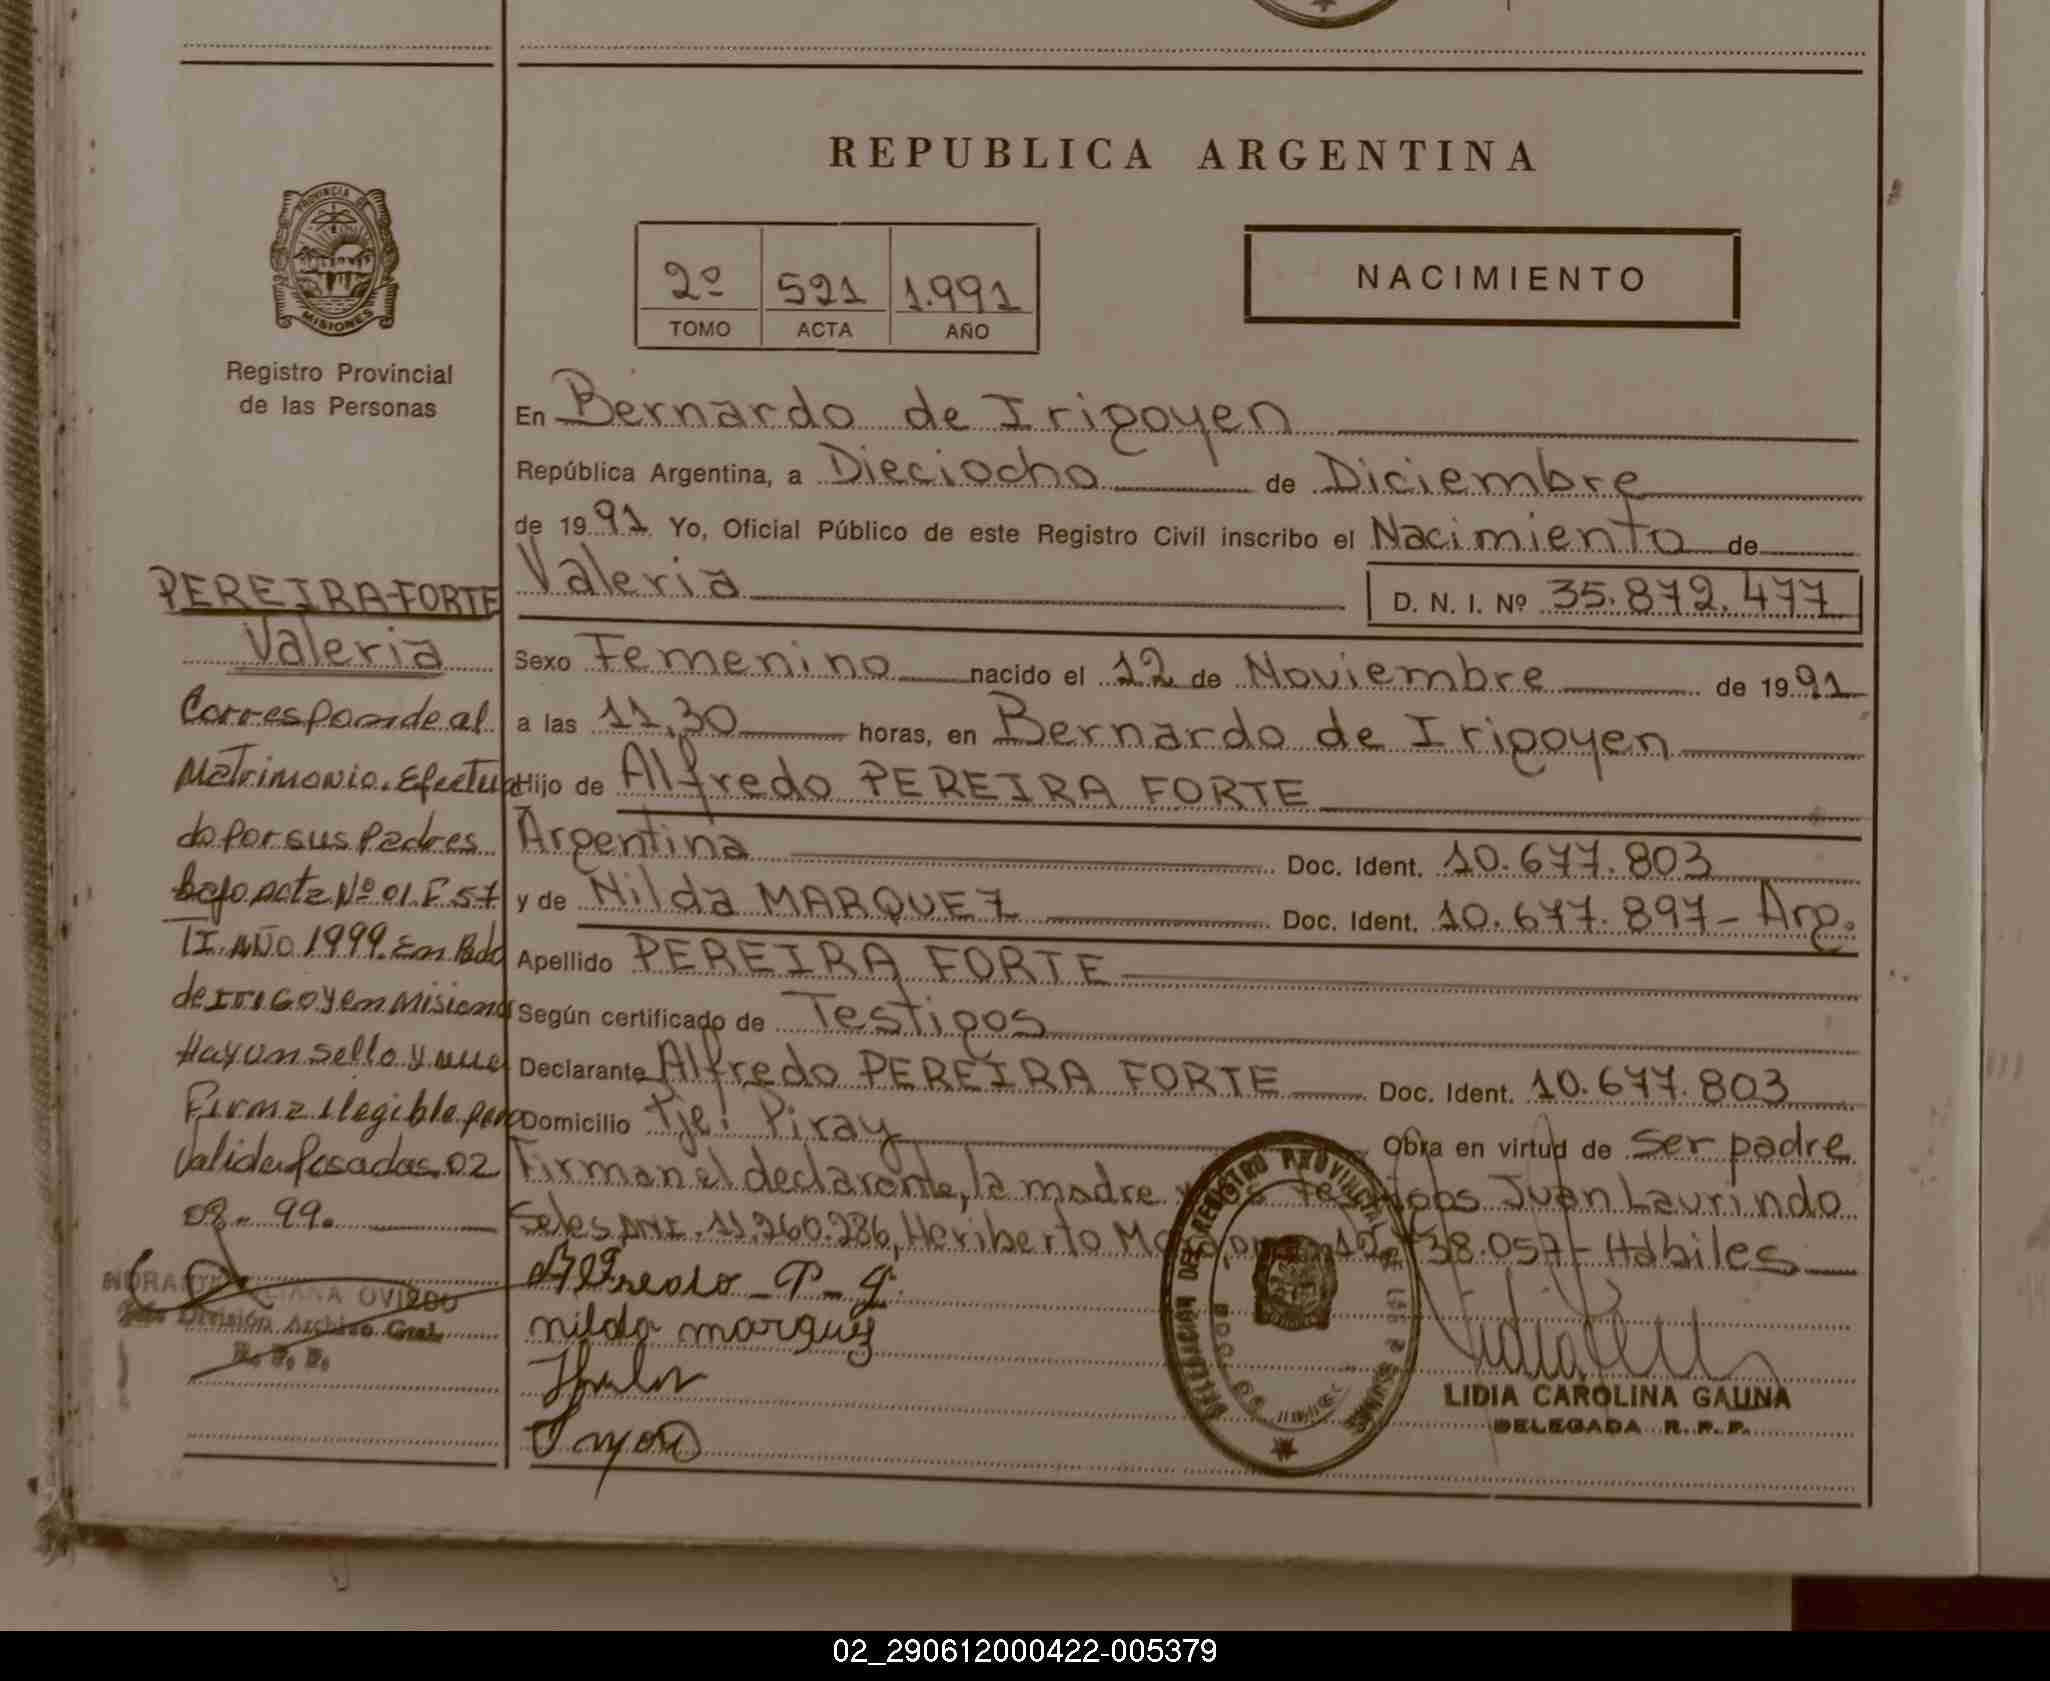 REPUBLICA ARGENTINA
PROVINCIA DE
MISIONES
Registro Provincial
de las Personas
2º 521 1.991
TOMO ACTA AÑO
NACIMIENTO
PEREIRA-FORTE
Valeria
Corresponde al
Matrimonio. Efectua
do por sus Padres
bajo acta Nº 01. F 57
TI. AÑO 1999. Em Bdo
de IrriGoyem Misiones
Hay un sello y una
Firma ilegible pero
Valida Posadas. 02
03-99.
OVIEDO
División Archivo Gral.
R. P. P.
En Bernardo de Irigoyen
República Argentina, a Dieciocho de Diciembre
de 1991 Yo, Oficial Público de este Registro Civil inscribo el Nacimiento de
Valeria D. N. I. Nº 35.872.477
Sexo Femenino nacido el 12 de Noviembre de 1991
a las 11,30 horas, en Bernardo de Irigoyen
Hijo de Alfredo PEREIRA FORTE
Argentina Doc. Ident. 10.677.803
y de Nilda MARQUEZ Doc. Ident. 10.677.897- Arg.
Apellido PEREIRA FORTE
Según certificado de Testigos
Declarante Alfredo PEREIRA FORTE Doc. Ident. 10.677.803
Domicilio Pje! Piray Obra en virtud de Ser padre
Firman el declarante, la madre y Juan Laurindo
Seles DNI. 11.260.286, Heriberto 38.057- Hábiles
Alfredo - P - F.
nilda marquez
DELEGACION DEL REGISTRO PROVINCIAL DE LAS PERSONAS
LIDIA CAROLINA GAUNA
DELEGADA R. P. P.
02_290612000422-005379